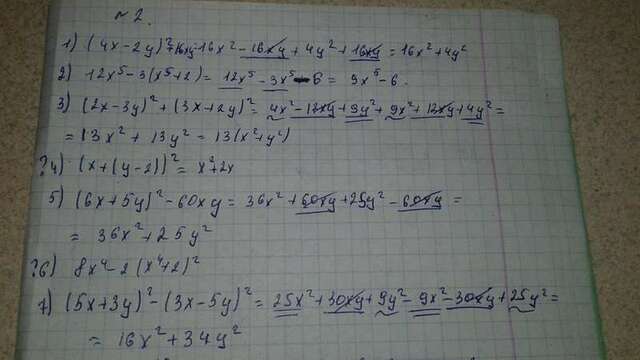 № 2.
1) (4x-2y)²+16xy=16x²-16xy+4y²+16xy=16x²+4y²
2) 12x⁵-3(x⁵+2)=12x⁵-3x⁵-6=9x⁵-6.
3) (2x-3y)²+(3x+2y)²=4x²-12xy+9y²+9x²+12xy+4y²=
=13x²+13y²=13(x²+y²)
?4) (x+(y-2))²=x²+2x
5) (6x+5y)²-60xy=36x²+60xy+25y²-60xy=
=36x²+25y²
?6) 8x⁴-2(x⁴+2)²
7) (5x+3y)²-(3x-5y)²=25x²+30xy+9y²-9x²-30xy+25y²=
=16x²+34y²